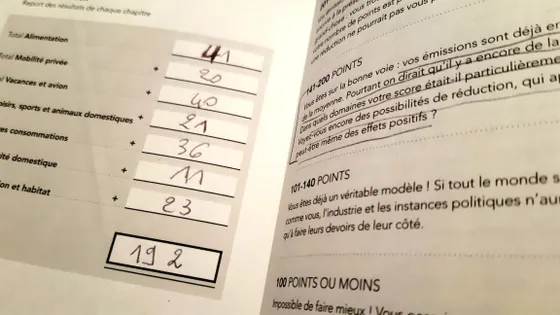 Report des résultats de chaque chapitre
Total Alimentation 41
Total Mobilité privée + 20
Vacances et avion + 40
sports et animaux domestiques + 21
consommations + 36
domestique + 11
et habitat + 23
192
votre nombre de points est
une réduction ne pourrait pas vous
141-200 POINTS
Vous êtes sur la bonne voie : vos émissions sont déjà en
de la moyenne. Pourtant on dirait qu'il y a encore de la
Dans quels domaines votre score était-il particulièreme
Voyez-vous encore des possibilités de réduction, qui a
peut-être même des effets positifs ?
101-140 POINTS
Vous êtes déjà un véritable modèle ! Si tout le monde
comme vous, l'industrie et les instances politiques n'au
qu'à faire leurs devoirs de leur côté.
100 POINTS OU MOINS
Impossible de faire mieux ! Vous